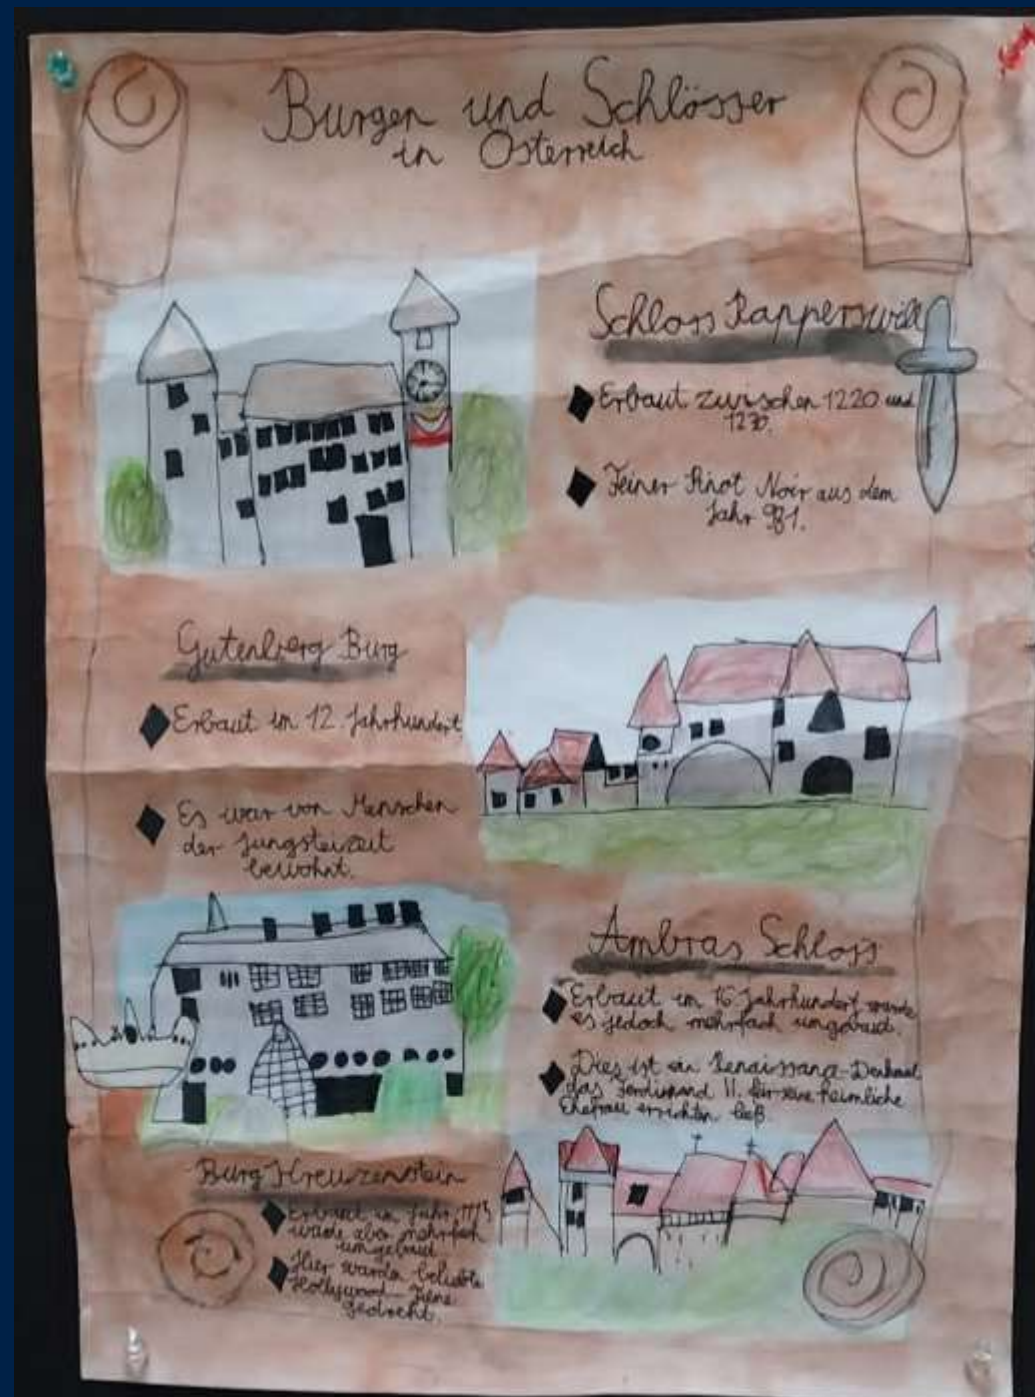 Burgen und Schlösser
in Österreich
Schloss Rapperswill
Erbaut zwischen 1220 und
1230.
Feiner Pinot Noir aus dem
Jahr 981.
Gutenberg Burg
Erbaut im 12. Jahrhundert
Es war von Menschen
der Jungsteizeit
bewohnt.
Ambras Schloss
Erbaut im 16 Jahrhundert, wurde
es jedoch mehrfach umgebaut.
Dies ist ein Renaissance-Denkmal
das Ferdinand II. für seine heimliche
Ehefrau errichten ließ.
Burg Kreuzenstein
Erbaut im Jahr 1115
wurde aber mehrfach
umgebaut
Hier wurden beliebte
Hollywood-Filme
gedreht.